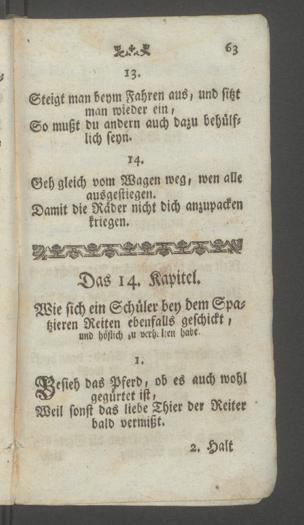 63
13.
Steigt man beym Fahren aus, und sitzt
man wieder ein,
So mußt du andern auch dazu behülf-
lich seyn.
14.
Geh gleich vom Wagen weg, wen alle
ausgestiegen.
Damit die Räder nicht dich anzupacken
kriegen.
Das 14. Kapitel.
Wie sich ein Schüler bey dem Spa-
tzieren Reiten ebenfalls geschickt,
und höflich zu verhalten habe.
1.
Besieh das Pferd, ob es auch wohl
gegürtet ist,
Weil sonst das liebe Thier der Reiter
bald vermißt.
2. Halt